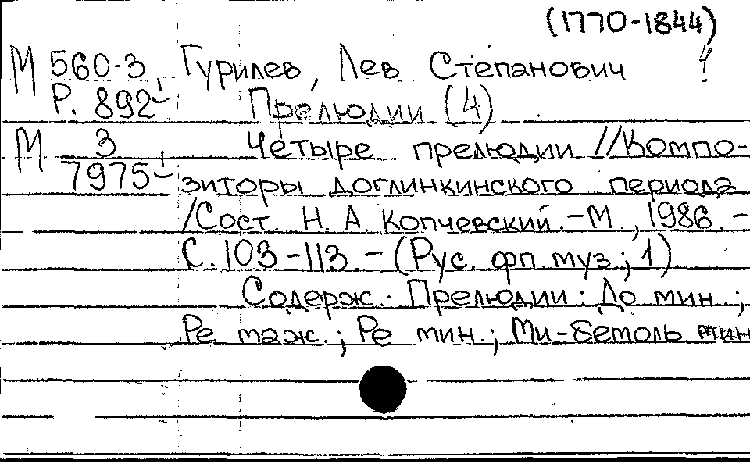 (1770-1844)
М 560-3, Гурилев, Лев Степанович !
Р. 892- Прелюдии (4)
М 3, Четыре прелюдии //Компо-
7975- зиторы доглинкинского периода
/Сост. Н. А Копчевский.-М., 1986.-
С. 103-113.-(Рус. фп. муз.; 1)
Содерж.: Прелюдии: До мин.;
Ре маж.; Ре мин.; Ми-бемоль мин